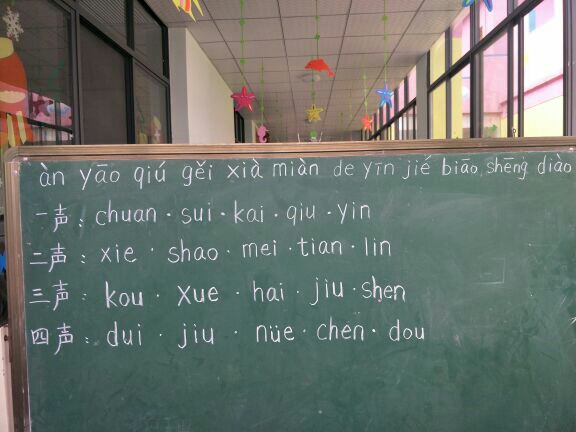 àn yāo qiú gěi xià miàn de yīn jié biāo shēng diào
一声：chuan·sui·kai·qiu·yin
二声：xie·shao·mei·tian·lin
三声：kou·xue·hai·jiu·shen
四声：dui·jiu·nüe·chen·dou